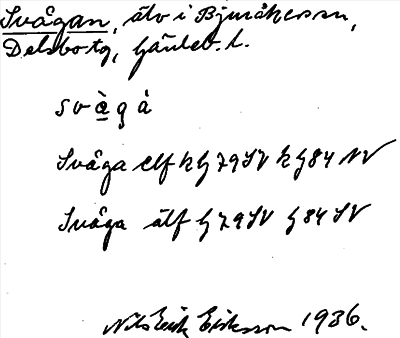 Svågan, älv i Bjuråkers sn,
Delsbo tg, Gävleb. l.
svàgå
Svåga elf h G 79 SV h G 84 NV
Svåga älf G 79 SV G 84 SV
Nils Erik Eriksson 1936.